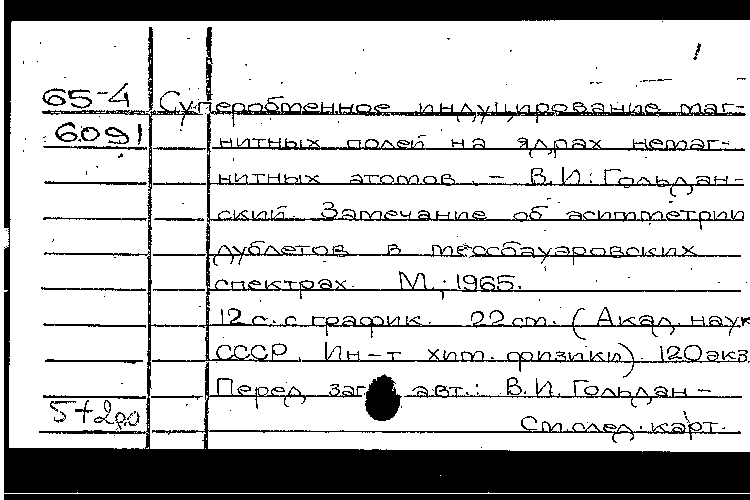 1
65-4 Суперобменное индуцирование маг-
6091 нитных полей на ядрах немаг-
нитных атомов. - В.И. Гольдан-
ский. Замечание об асимметрии
дублетов в мессбауэровских
спектрах. М., 1965.
12 с. с график. 22 см. (Акад. наук
СССР. Ин-т хим. физики). 120 экз
Перед заг авт.: В.И. Гольдан-
См. след. карт.